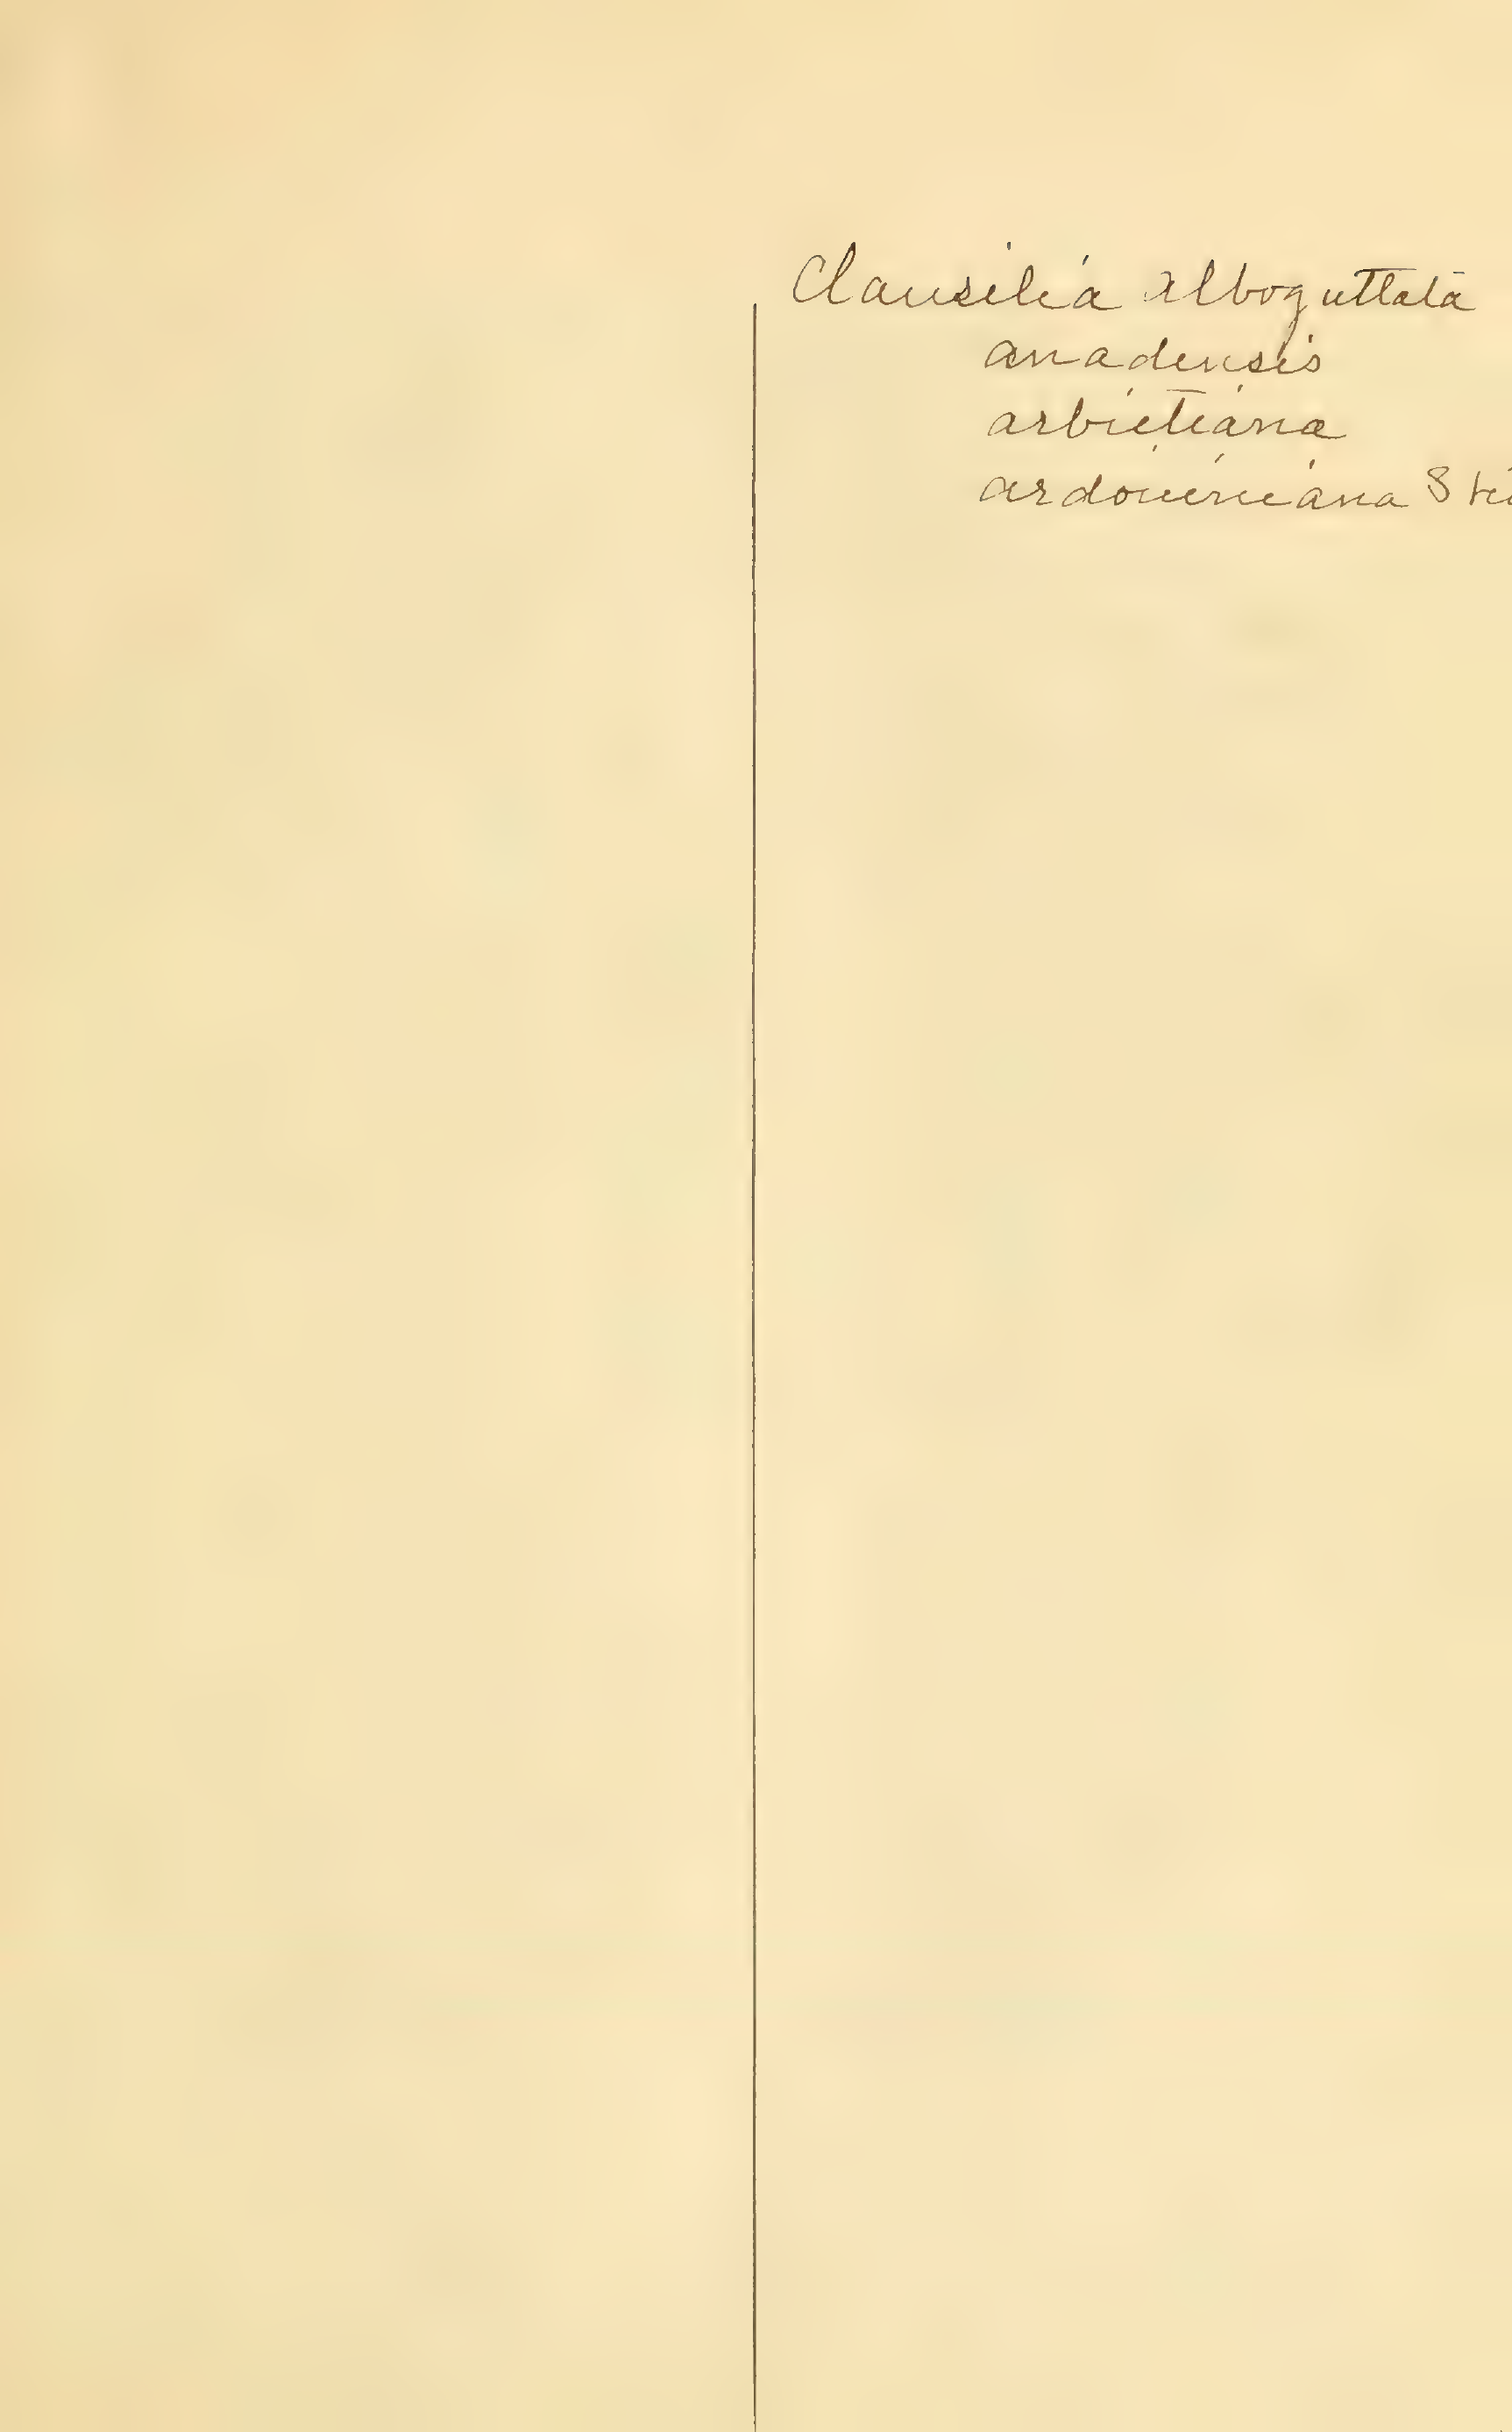 Clausilia alboguttata
anadensis
arbietiana
ardouiniana